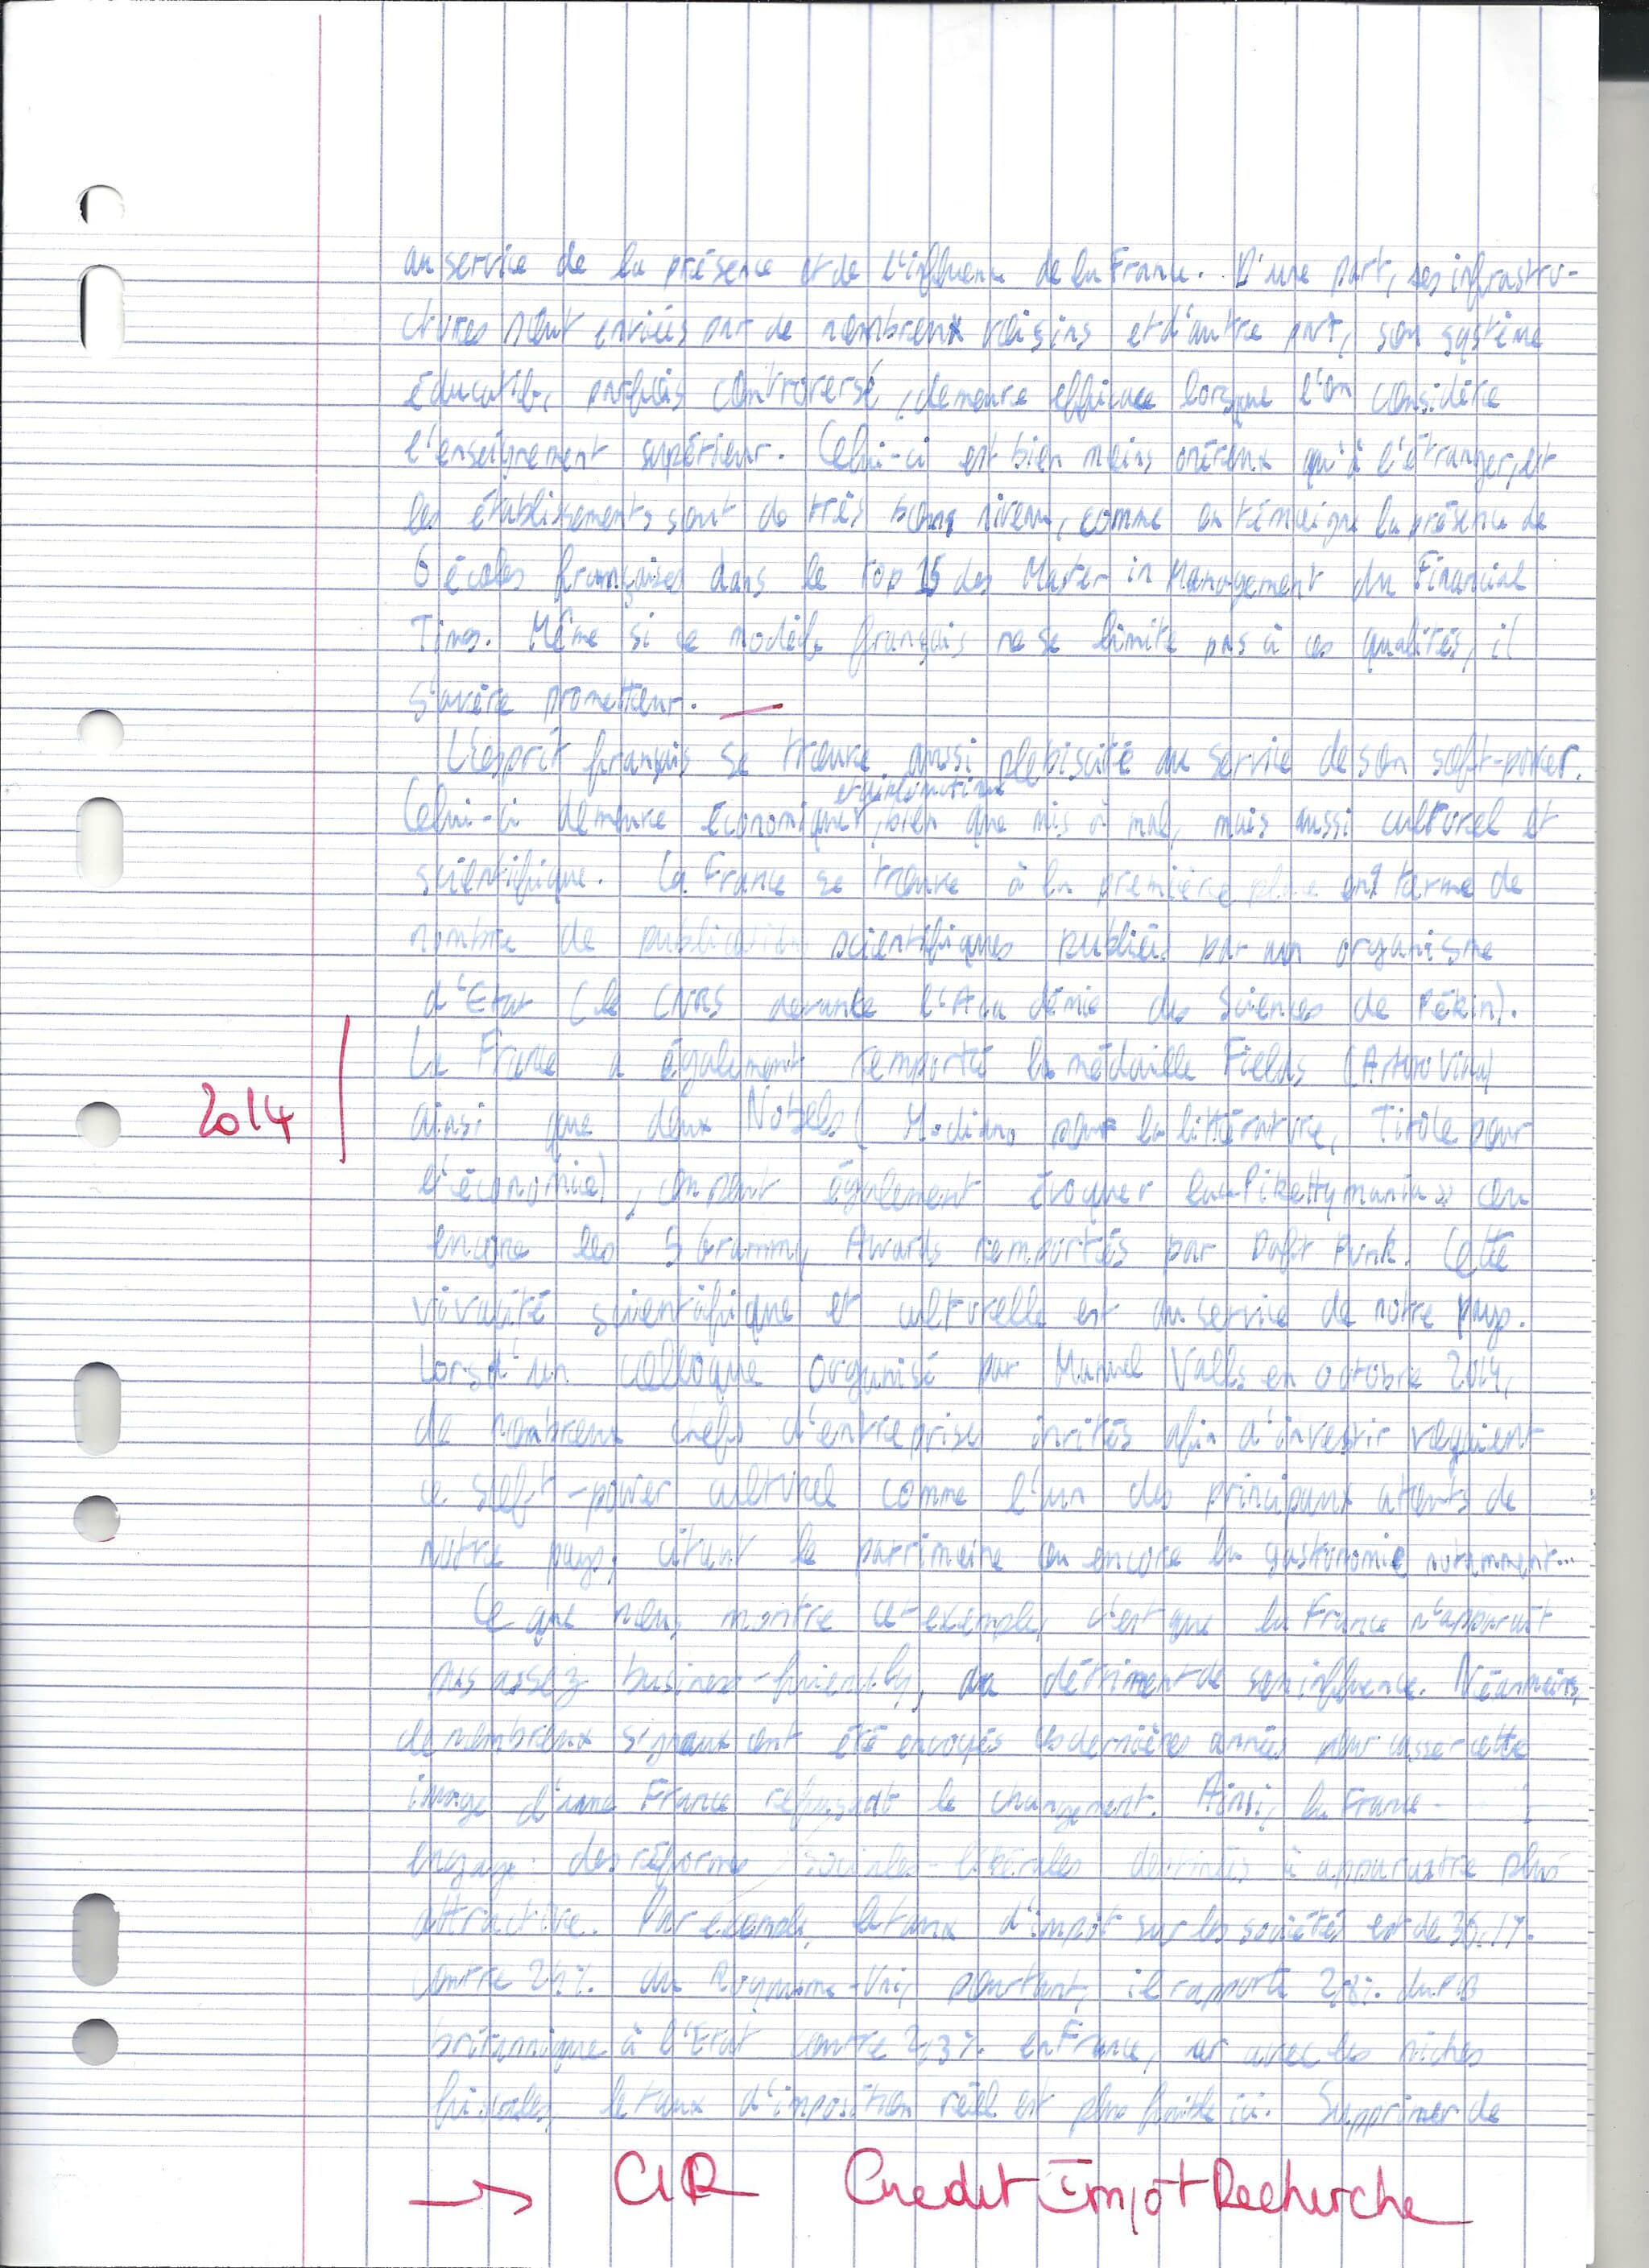 au service de la présence et de l'influence de la France. D'une part, ses infrastru-
ctures sont enviées par de nombreux voisins et d'autre part, son système
éducatif, parfois controversé, demeure efficace lorsque l'on considère
l'enseignement supérieur. Celui-ci est bien moins onéreux qu'à l'étranger, et
les établissements sont de très bons niveau, comme en témoigne la présence de
6 écoles françaises dans le top 15 des Master in Management du Financial
Times. Même si ce modèle français ne se limite pas à ces qualités, il
s'avère prometteur.
L'esprit français se trouve aussi plébiscité au service de son soft-power.
et diplomatique
Celui-ci demeure économique, bien que mis à mal, mais aussi culturel et
scientifique. La France se trouve à la première place en terme de
nombre de publications scientifiques publiées par un organisme
d'Etat (le CNRS devance l'Académie des Sciences de Pékin).
La France a également remporté la médaille Fields (Artur Avila)
2014
ainsi que deux Nobels (Modiano pour la littérature, Tirole pour
l'économie), on peut également évoquer la « Pikettymania » ou
encore les 5 Grammy Awards remportés par Daft Punk. Cette
vivacité scientifique et culturelle est au service de notre pays.
Lors d'un colloque organisé par Manuel Valls en octobre 2014,
de nombreux chefs d'entreprise invités afin d'investir voyaient
ce soft-power culturel comme l'un des principaux atouts de
notre pays, citant le patrimoine ou encore la gastronomie notamment...
Ce que nous montre cet exemple, c'est que la France n'apparaît
pas assez business-friendly, au détriment de son influence. Néanmoins,
de nombreux signaux ont été envoyés ces dernières années pour casser cette
image d'une France refusant le changement. Ainsi, la France
engage des réformes sociales-libérales destinées à apparaître plus
attractive. Par exemple, le taux d'impôt sur les sociétés est de 36,1%
contre 25% au Royaume-Uni, pourtant, il rapporte 2,8% du PIB
britannique à l'Etat contre 2,3% en France, car avec les niches
fiscales, le taux d'imposition réel est plus faible ici. Supprimer de
→ CIR Credit Impôt Recherche